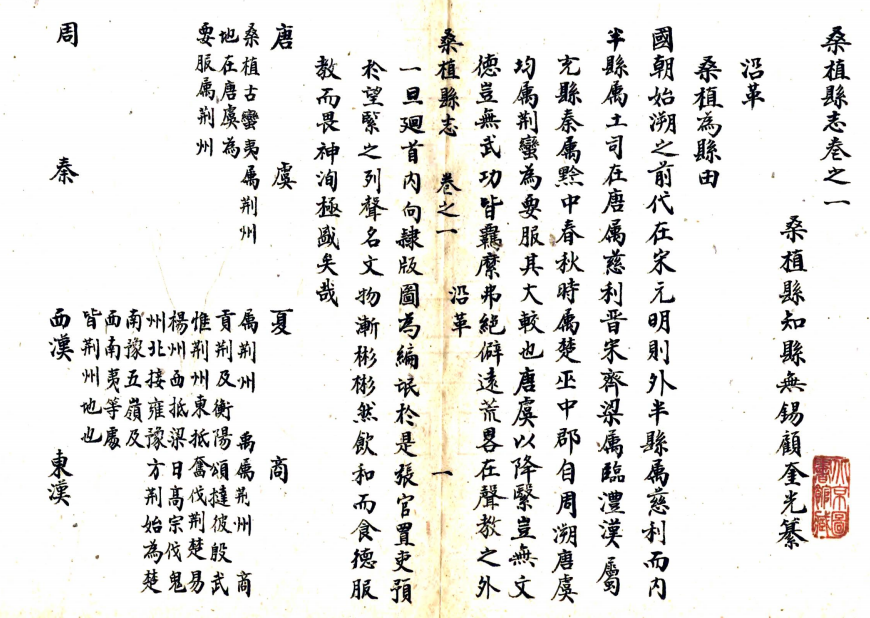 桑植縣志卷之一
桑植縣知縣無錫顧奎光纂
沿革
桑植為縣由
國朝始溯之前代在宋元明則外半縣属慈利而内
半縣属土司在唐属慈利晋宋齊梁属臨澧漢属
充縣秦属黔中春秋時属楚巫中郡自周溯唐虞
均属荆蠻為要服其大較也唐虞以降繄豈無文
德豈無武功皆羁縻弗絕僻遠荒畧在聲教之外
桑植縣志 卷之一 沿革 一
一旦廻首内向隸版圖為編氓於是張官置吏預
於望緊之列聲名文物漸彬彬然飲和而食德服
教而畏神洵極盛矣哉
唐 虞 夏 商
桑植古蠻夷属荆州
地在唐虞為
要服属荆州
属荆州 禹属荆州 商
貢荆及衡陽頌撻彼殷武
惟荆州東抵奮伐荆楚易
楊州西抵梁曰髙宗伐鬼
州北接雍豫方荆始為楚
南豫五嶺及
西南夷等處
皆荆州地也
周 秦 西漢 東漢